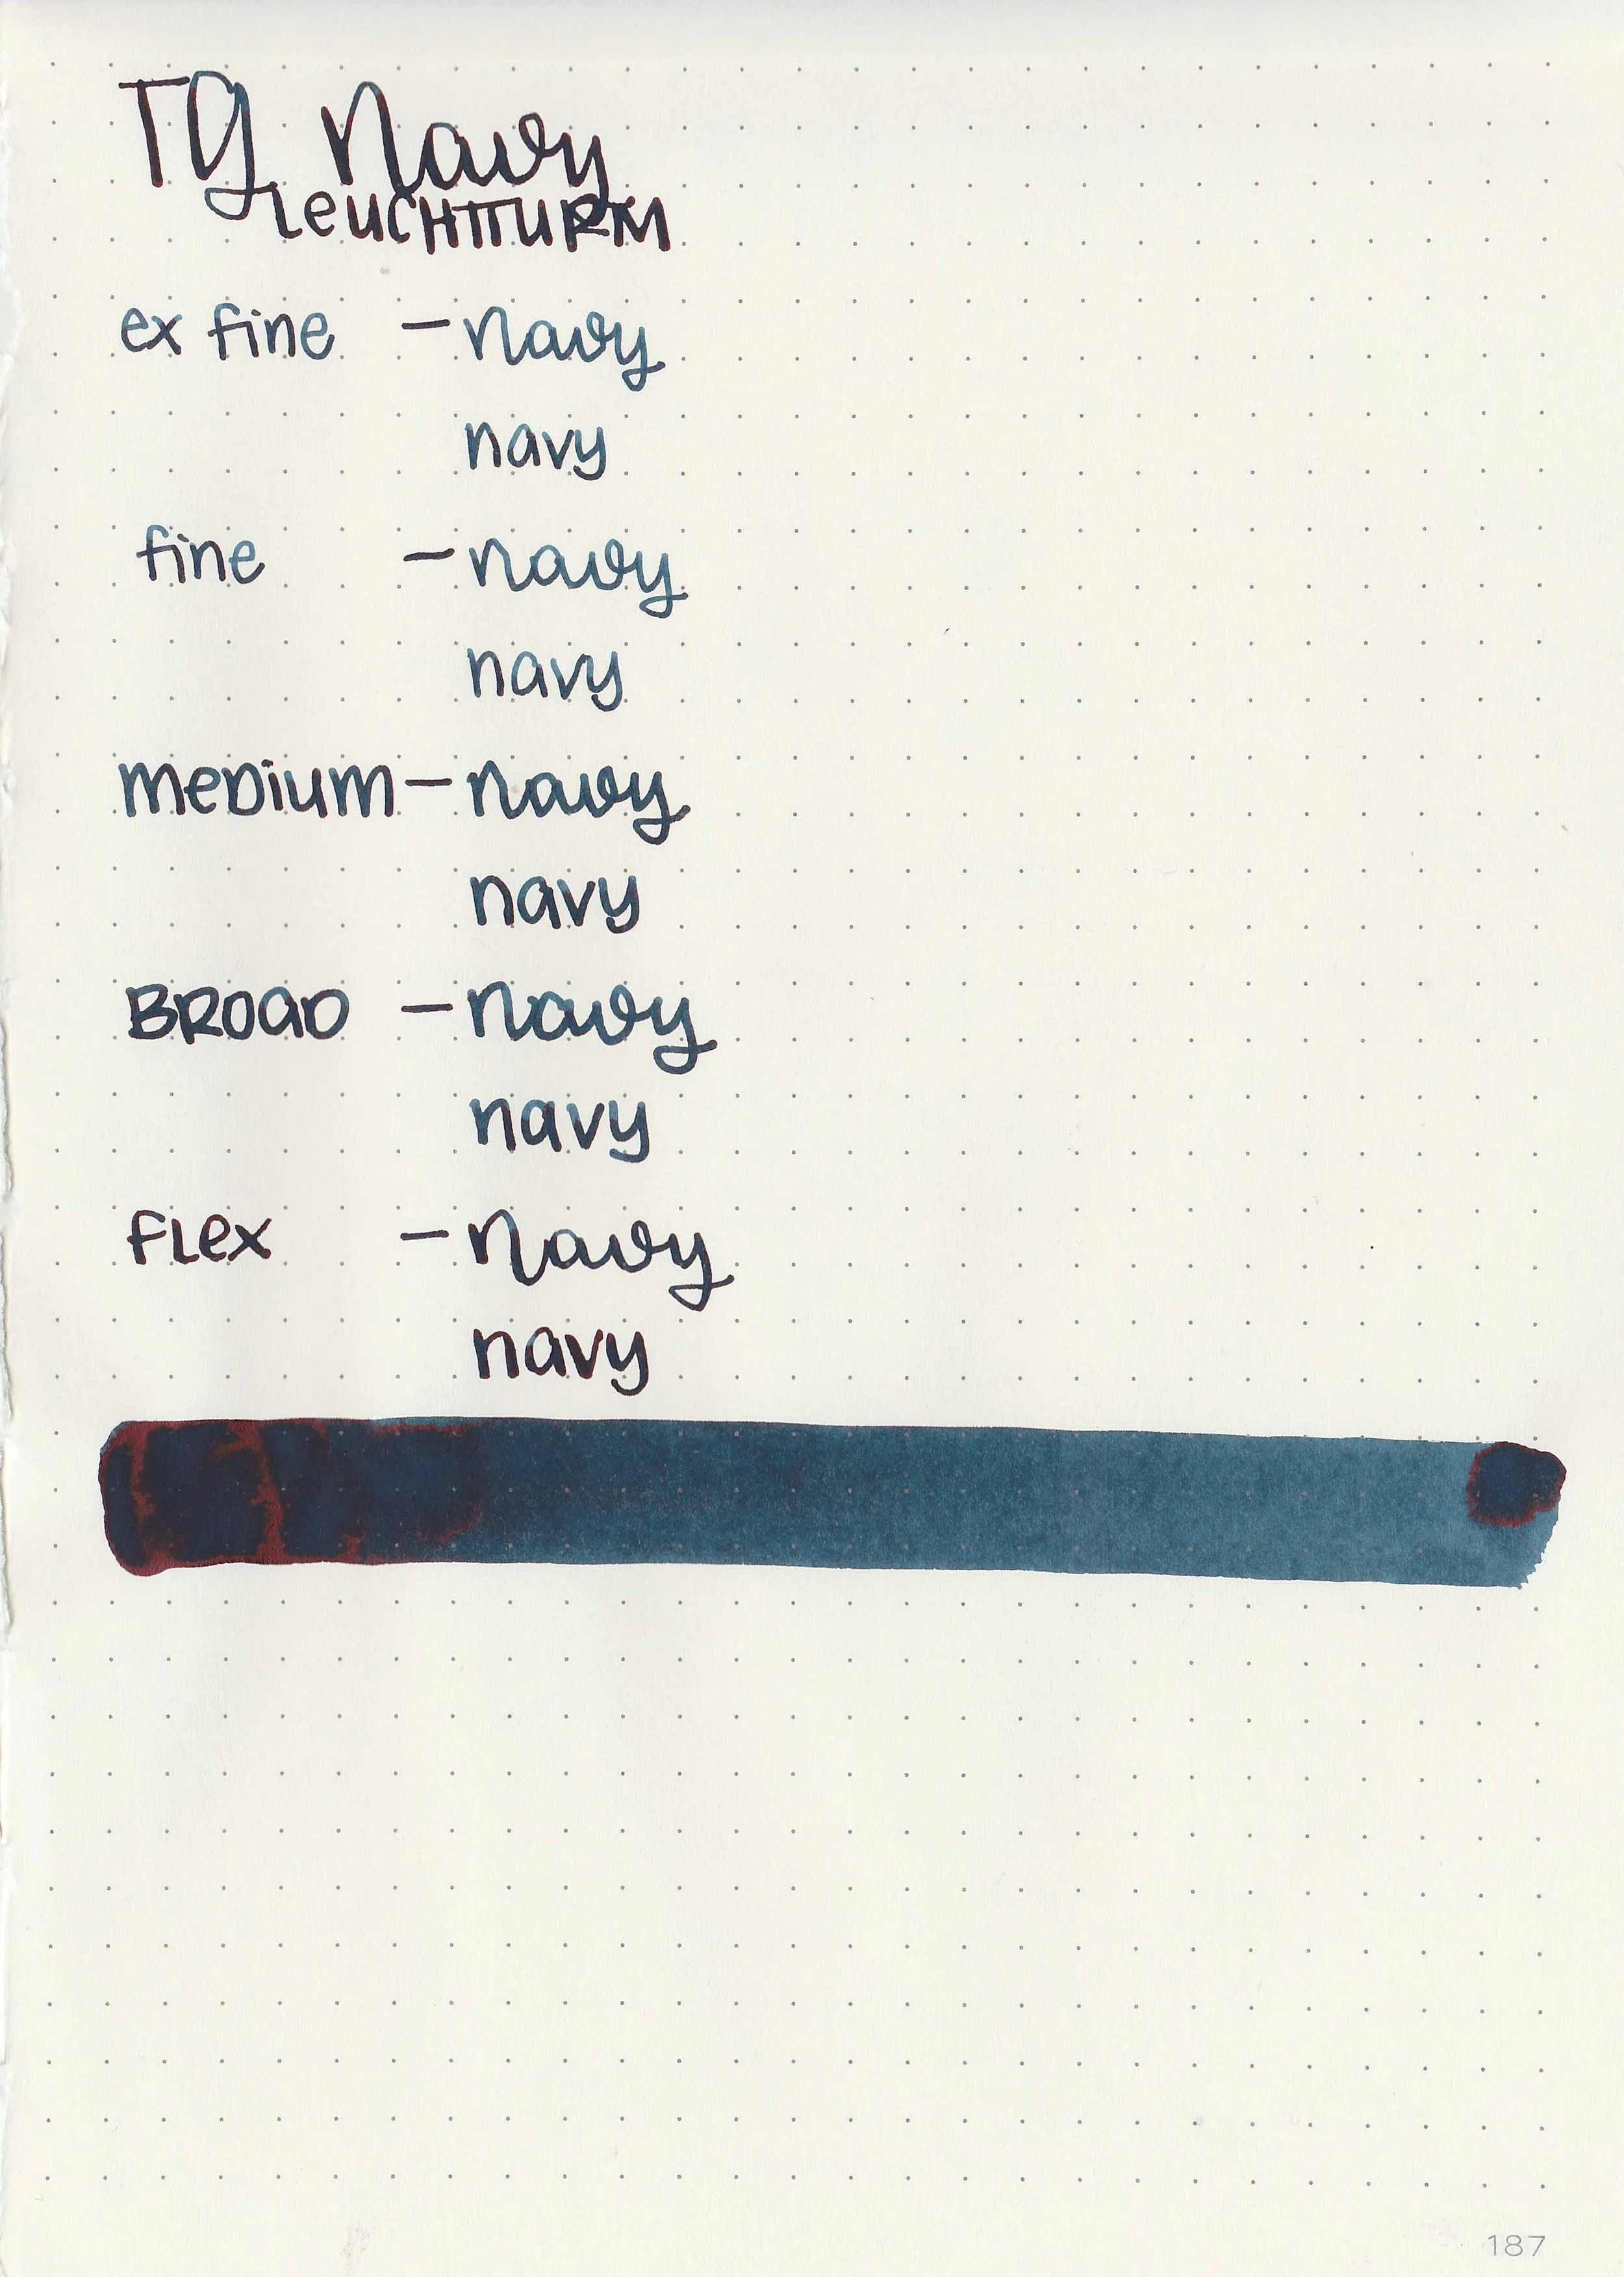 TG Navy
LeuCHTTURM
ex fine - Navy
navy
fine - Navy
navy
meDium - Navy
navy
BROaD - Navy
navy
FLex - Navy
navy
187